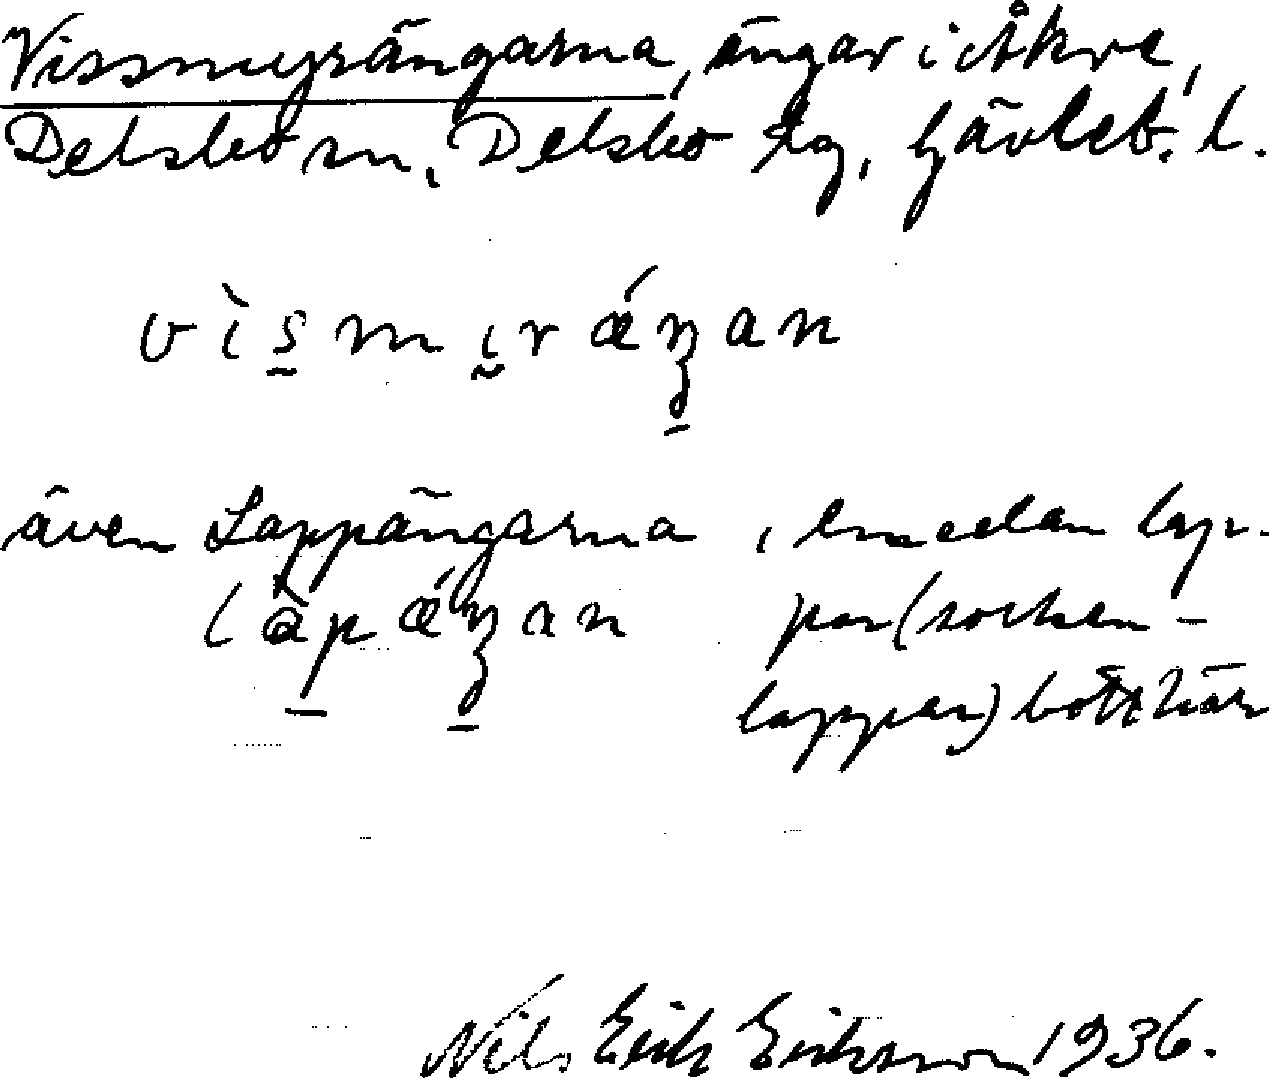 Vissmyrängarna, ängar i Åkre,
Delsbo sn, Delsbo tg, Gävleb. l.
vìs̱mı̰ráŋ̱an
även Lappängarna, emedan lap-
làp̱ǽŋ̱an par (socken-
lappar) bott här
Nils Erik Eriksson 1936.